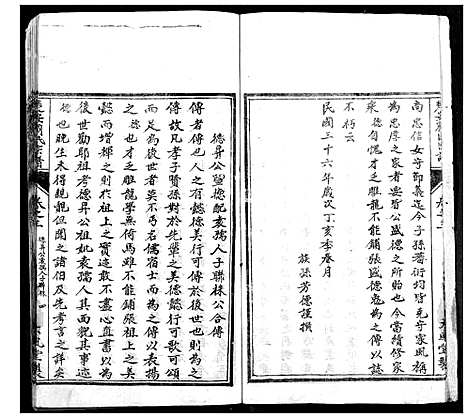 尚忠信女守節義迄今子孫蕃衍均皆克守家風稱
為忠厚之家者無皆公盛德之所貽也今當續修家
乘德也不才乏雕龍學無倚馬雖不能鋪張盛德以誌
不朽云
民國三十六年歲次丁亥季春月
族孫芳德謹撰
德昇公暨德配袁孺人子聯棶公合傳
傳者傳也人之有懿德美行可傳於後世則為之
傳故凡孝子賢孫對於先輩之美德懿行可歌可頌
者莫不再三央儒宿士而為之傳以表揚
之德也才乏雕龍學無倚馬雖不能鋪張祖上之美
懿而增禪之於德行然不忍不盡心直書以為
後世勸耶祖考德昇公妣袁孺人其面貌其事迹
德也晚生未得親龍但聞之諸伯及先考言之詳矣
卷之三
德昇公袁孺人合
四